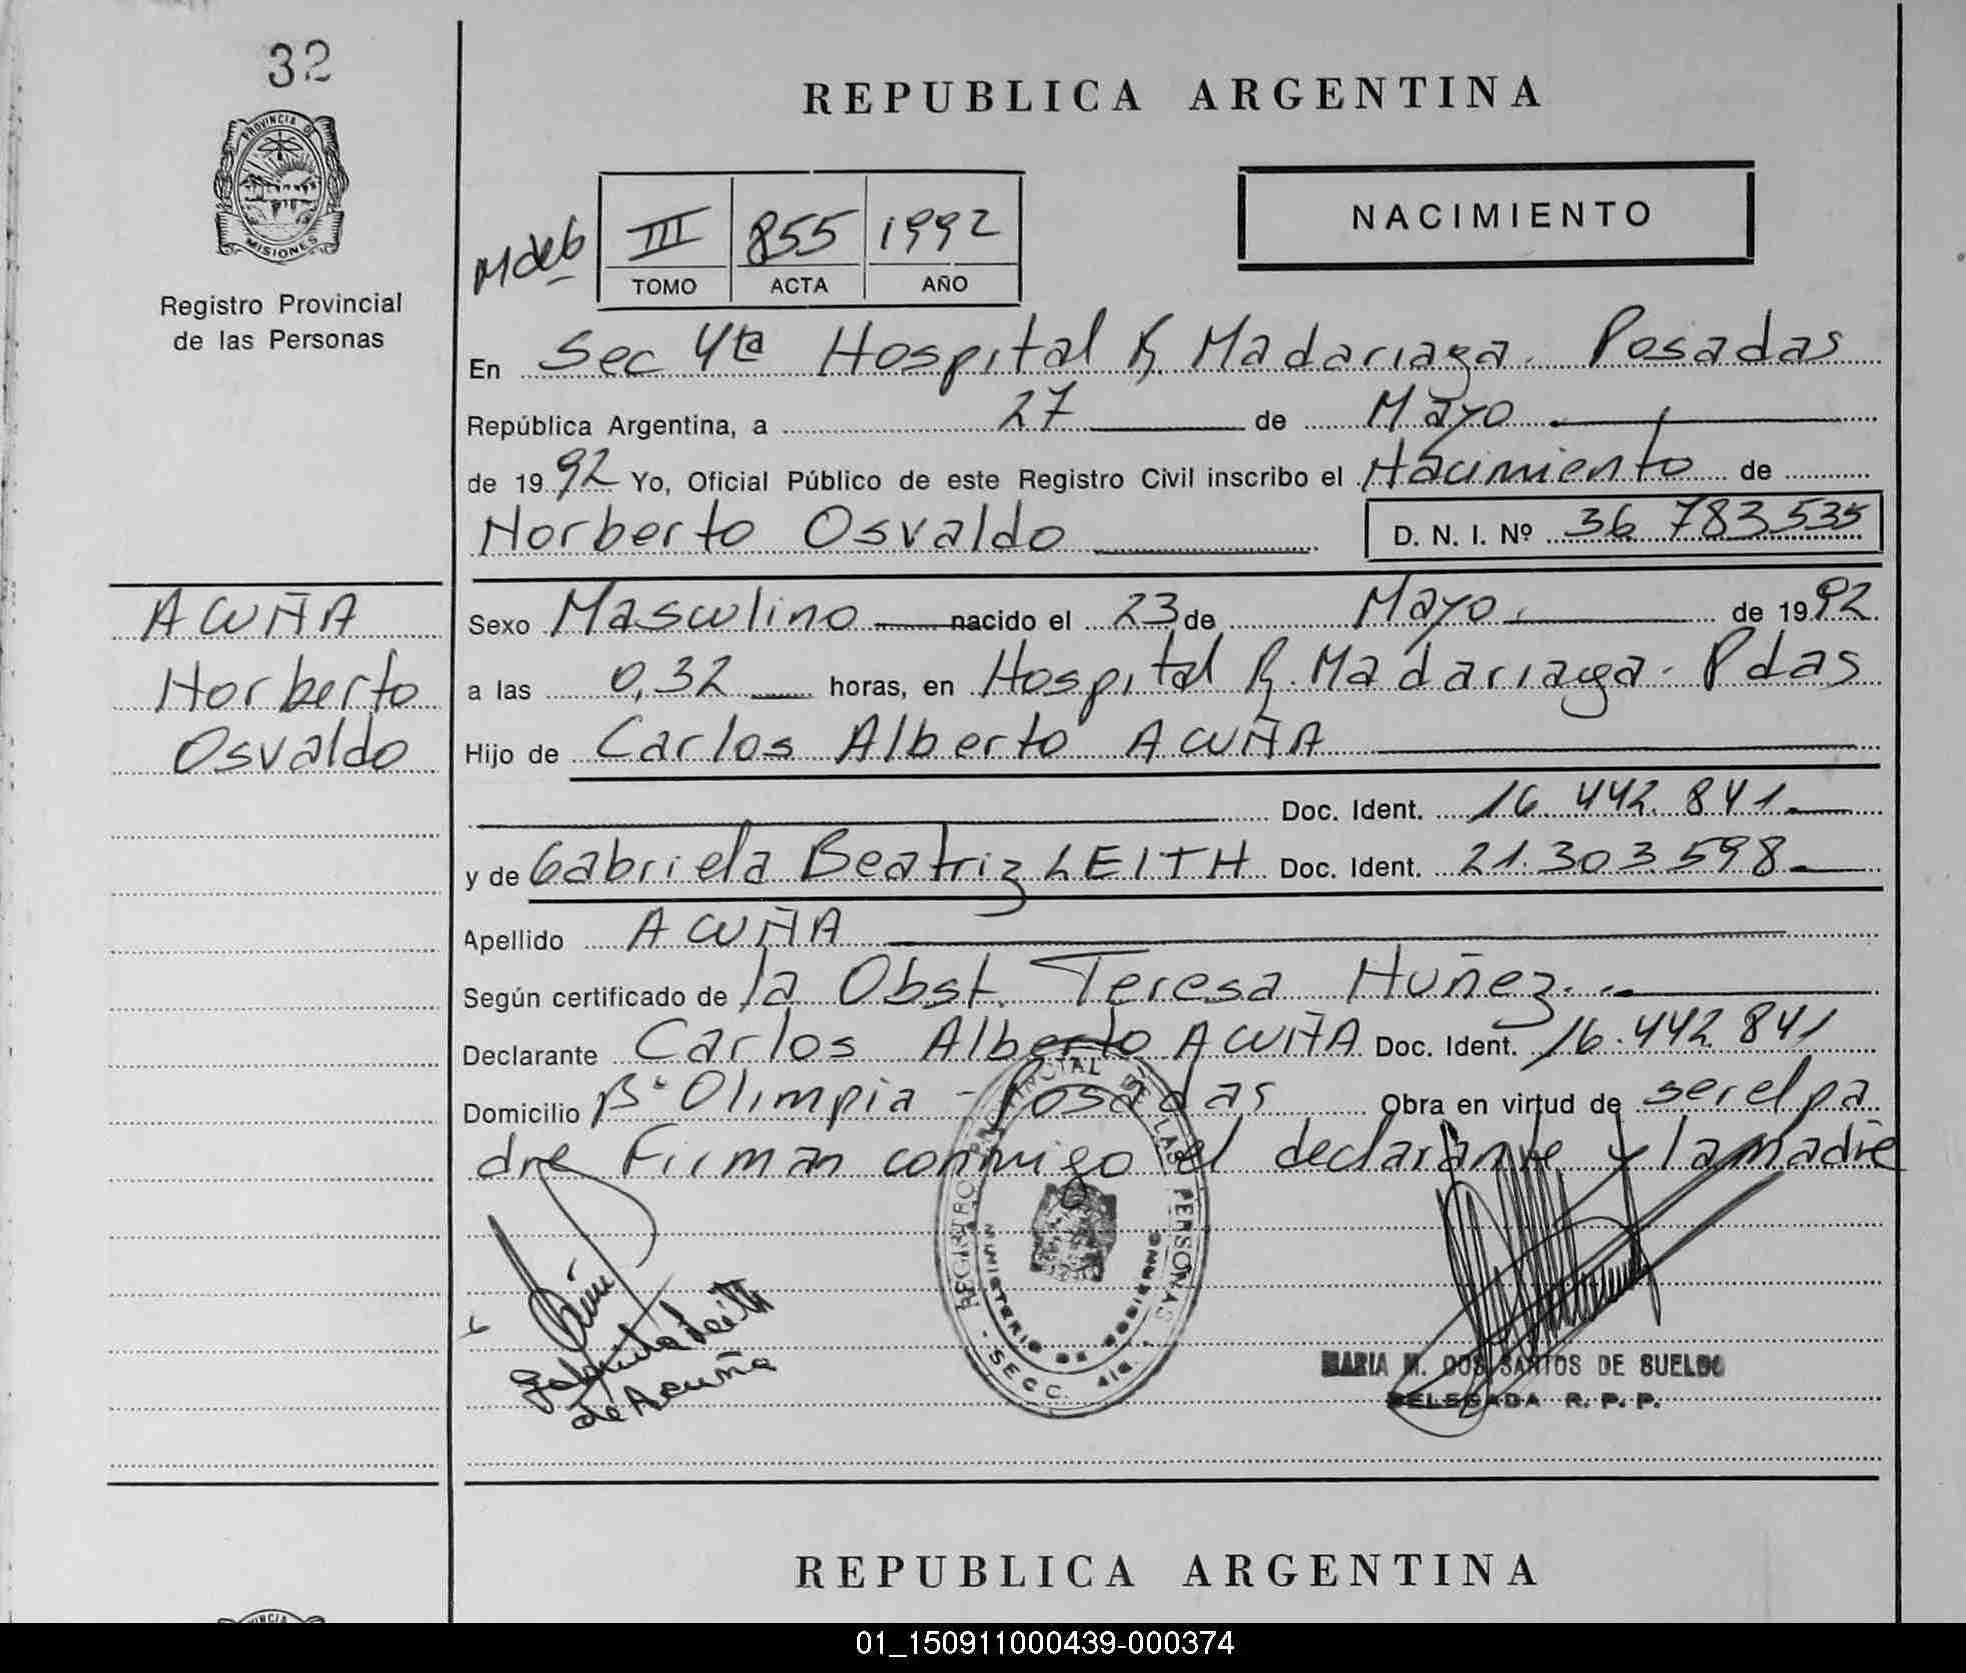 32
PROVINCIA DE
MISIONES
Registro Provincial
de las Personas
REPUBLICA ARGENTINA
III 855 1992
TOMO ACTA AÑO
NACIMIENTO
En Sec 4ta Hospital R. Madariaga. Posadas
República Argentina, a 27 de Mayo
de 1992 Yo, Oficial Público de este Registro Civil inscribo el Nacimiento de
Norberto Osvaldo D. N. I. Nº 36 783 535
ACUÑA
Norberto
Osvaldo
Sexo Masculino nacido el 23 de Mayo. de 1992
a las 0,32 horas, en Hospital R. Madariaga. Pdas
Hijo de Carlos Alberto ACUÑA
Doc. Ident. 16.442.841.
y de Gabriela Beatriz LEITH Doc. Ident. 21.303.598.
Apellido ACUÑA
Según certificado de la Obst. Teresa Nuñez.
Declarante Carlos Alberto ACUÑA Doc. Ident. 16.442 841
Domicilio Bº Olimpia - Posadas Obra en virtud de ser el pa
dre Firman conmigo el declarante y la madre
REGISTRO PROVINCIAL DE LAS PERSONAS
MINISTERIO DE GOBIERNO
- SECC. 4ta. -
Gabriela Leith
de Acuña
MARIA M. DOS SANTOS DE SUELDO
DELEGADA R. P. P.
REPUBLICA ARGENTINA
01_150911000439-000374